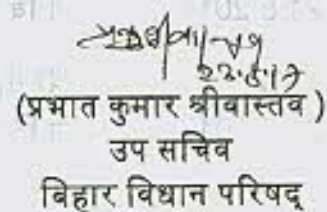 22.5.17
(प्रभात कुमार श्रीवास्तव )
उप सचिव
बिहार विधान परिषद्